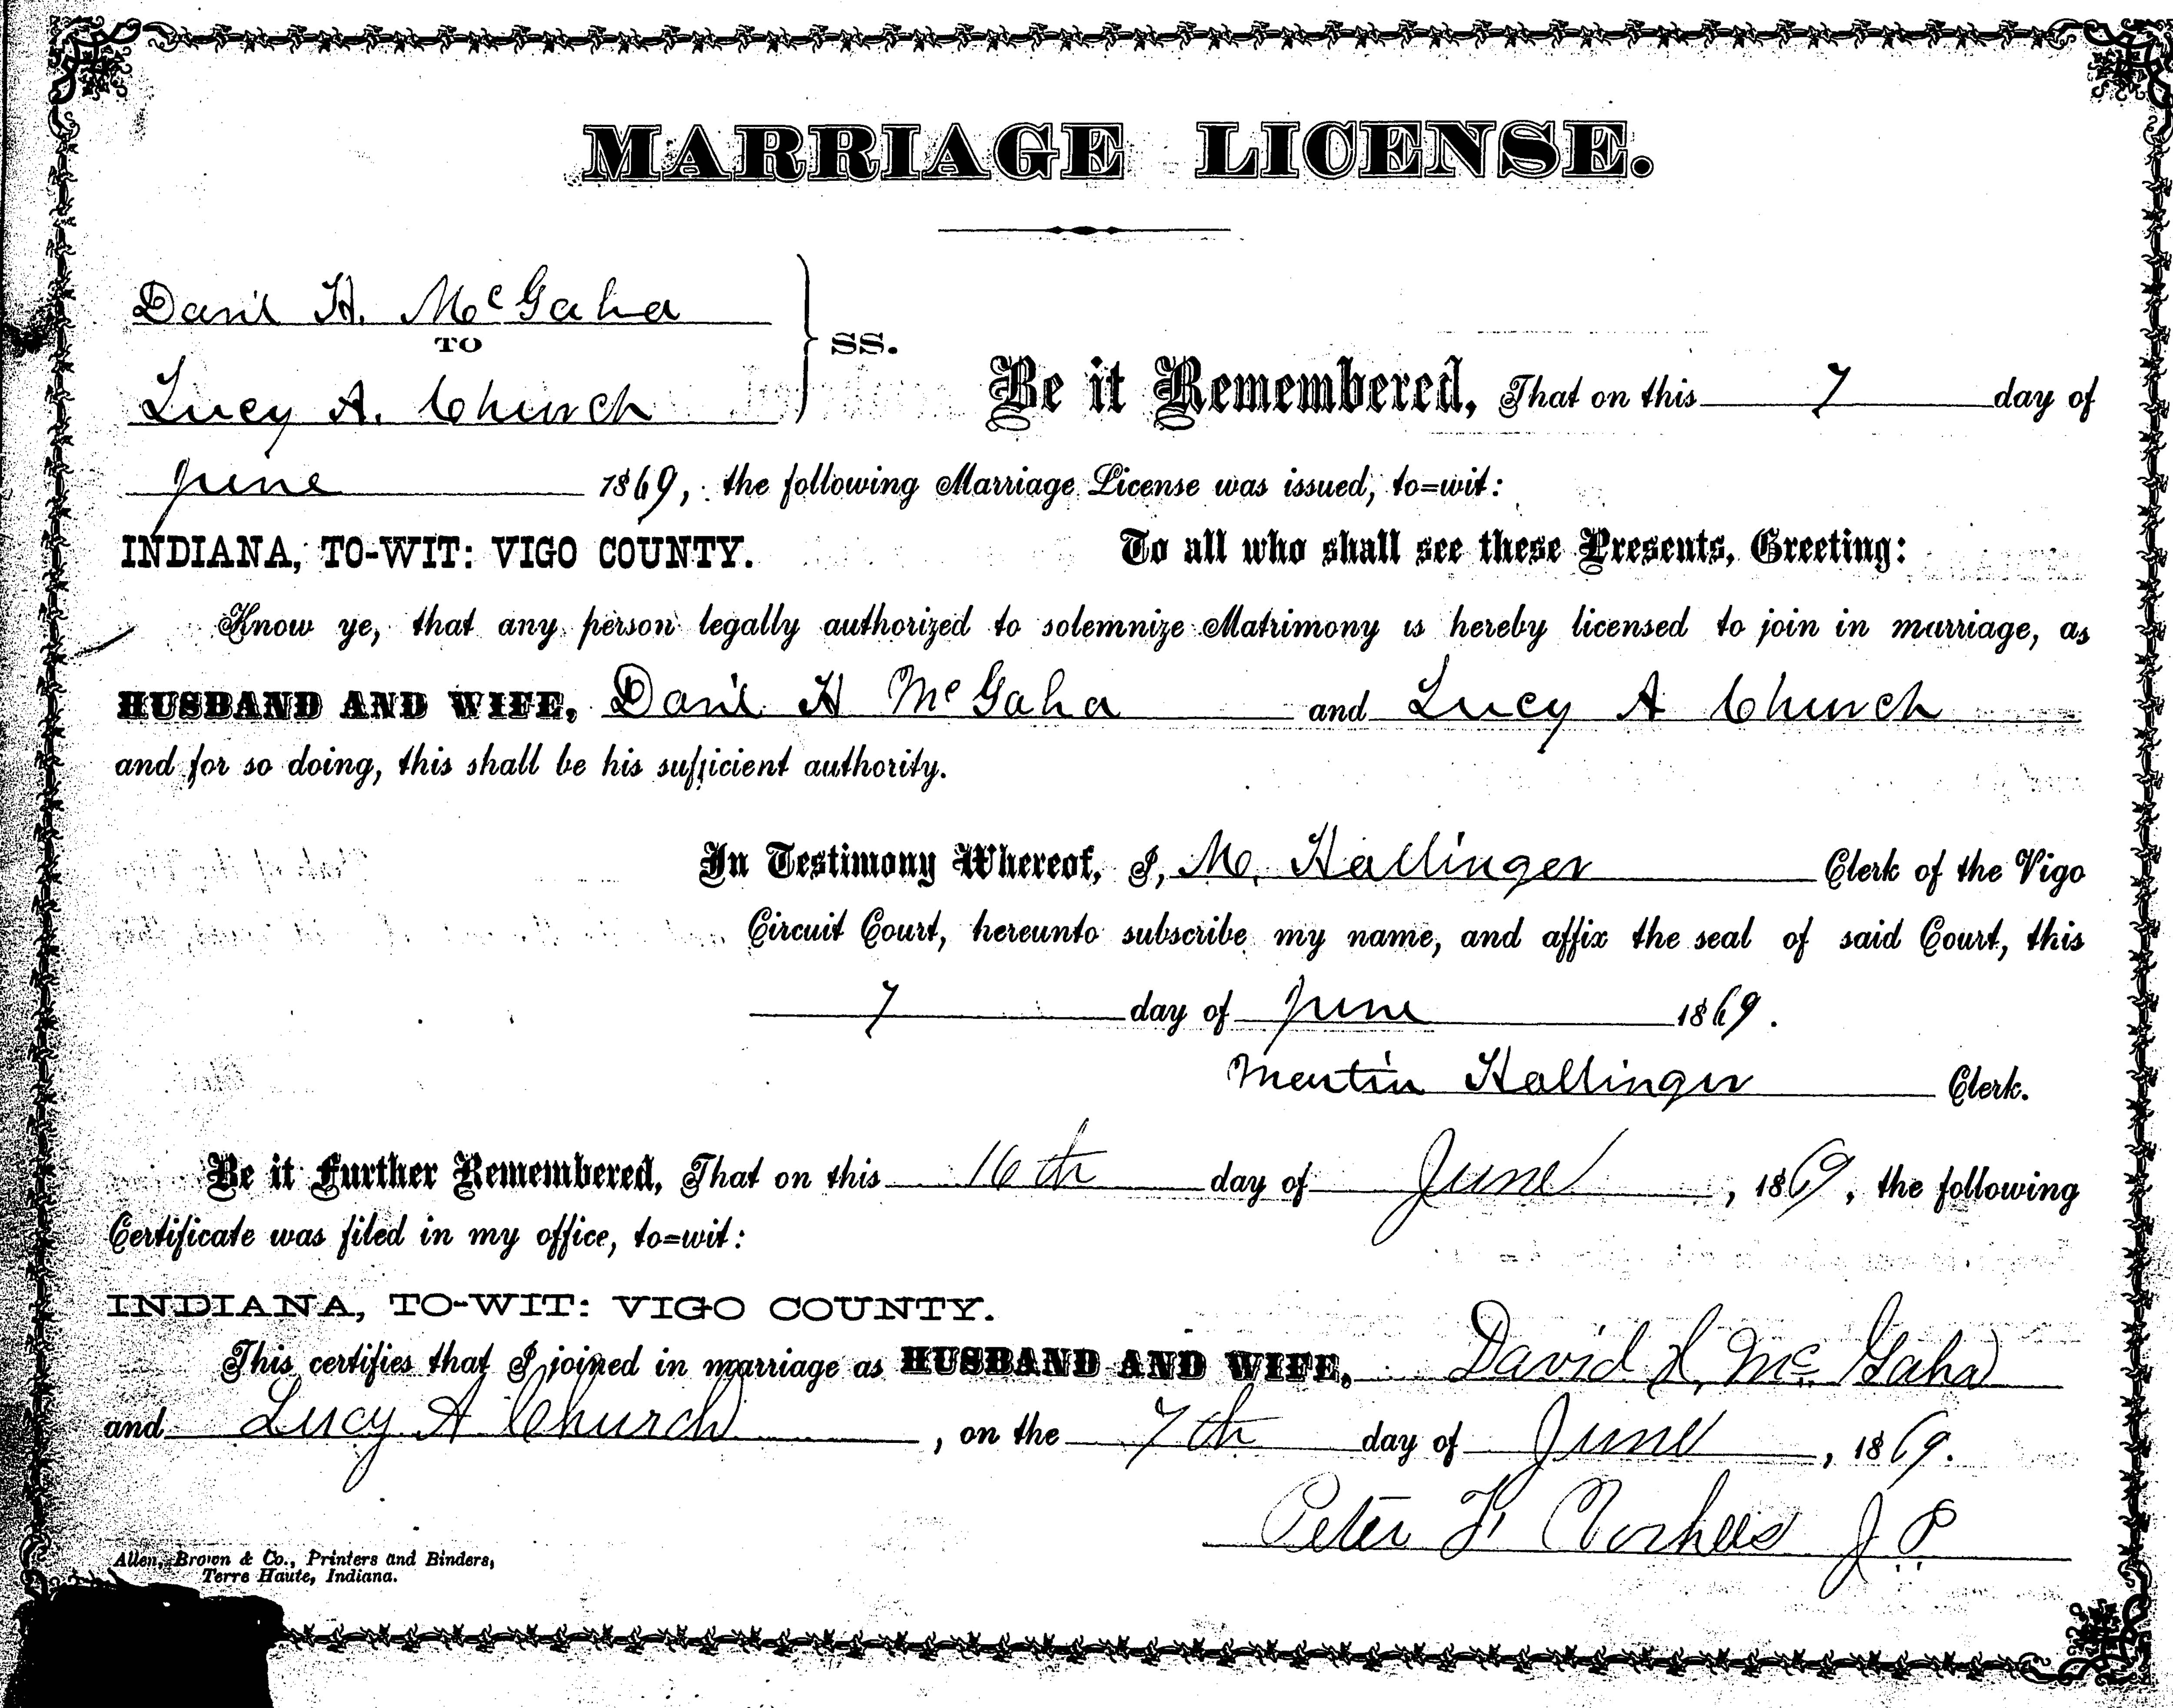 MARRIAGE LICENSE.
Danil H. McGaha
TO
Lucy A. Church
SS.
Be it Remembered, That on this 7 day of
June 1869, the following Marriage License was issued, to=wit:
INDIANA, TO-WIT: VIGO COUNTY. To all who shall see these Presents, Greeting:
Know ye, that any person legally authorized to solemnize Matrimony is hereby licensed to join in marriage, as
HUSBAND AND WIFE, Danil H McGaha and Lucy A Church
and for so doing, this shall be his sufficient authority.
In Testimony Whereof, I, M. Hallinger Clerk of the Vigo
Circuit Court, hereunto subscribe my name, and affix the seal of said Court, this
7 day of June 1869.
Martin Hallinger Clerk.
Be it Further Remembered, That on this 16th day of June, 1869, the following
Certificate was filed in my office, to=wit:
INDIANA, TO-WIT: VIGO COUNTY.
This certifies that I joined in marriage as HUSBAND AND WIFE, David H. Mc Gaha
and Lucy A Church, on the 7th day of June, 1869.
Peter F. Vorhees J. P.
Allen, Brown & Co., Printers and Binders,
Terre Haute, Indiana.